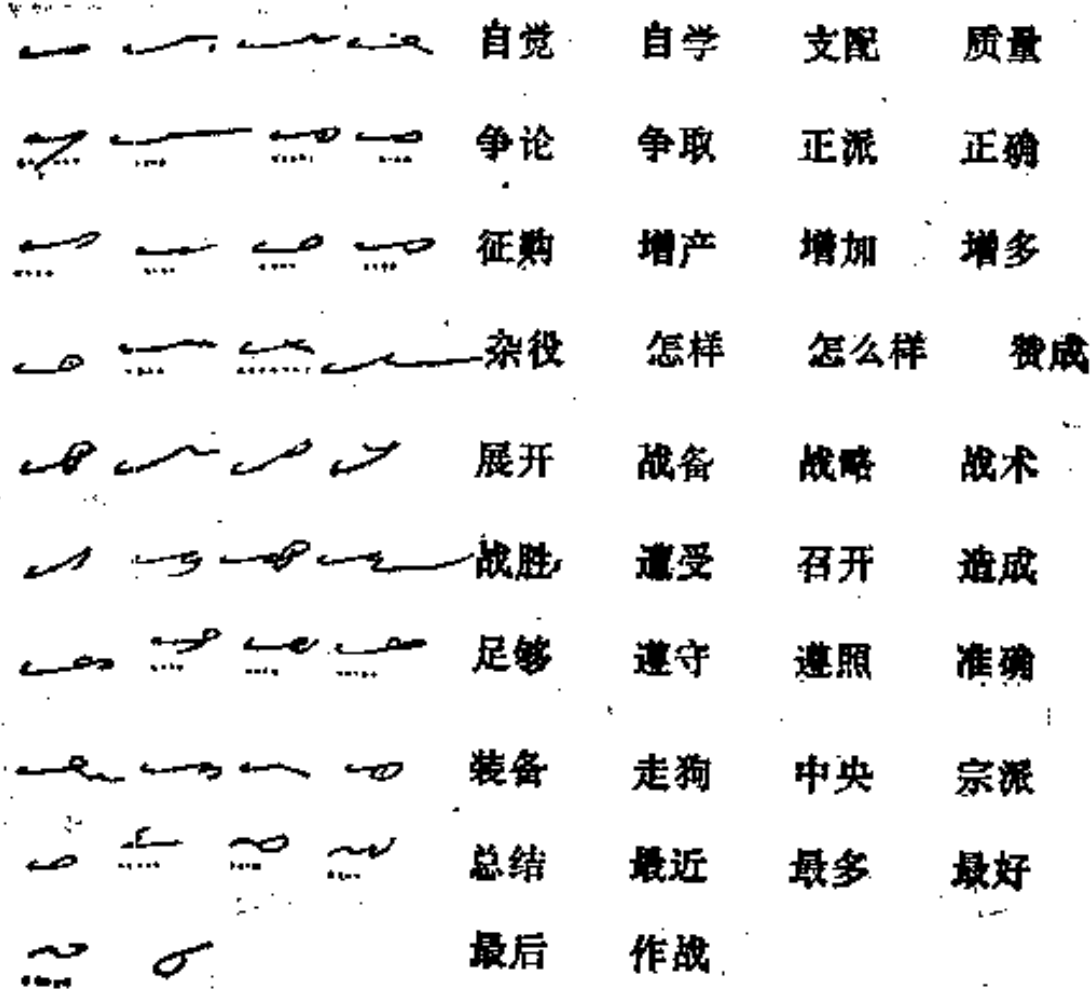 自觉 自学 支配 质量
争论 争取 正派 正确
征购 增产 增加 增多
杂役 怎样 怎么样 赞成
展开 战备 战略 战术
战胜 遭受 召开 造成
足够 遵守 遵照 准确
装备 走狗 中央 宗派
总结 最近 最多 最好
最后 作战